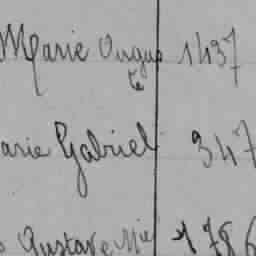 Marie Augus 1437
te
arie Gabriel 347
Gustave Mie 1786